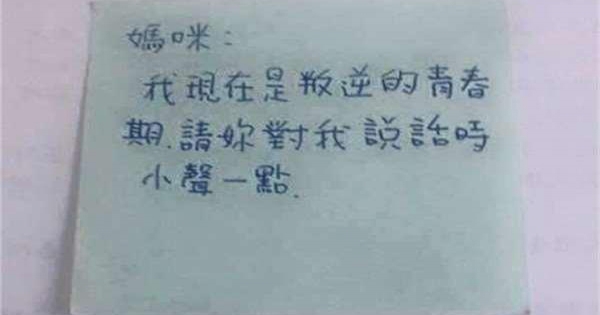 媽咪:
我現在是叛逆的青春
期.請妳對我說話時
小聲一點.